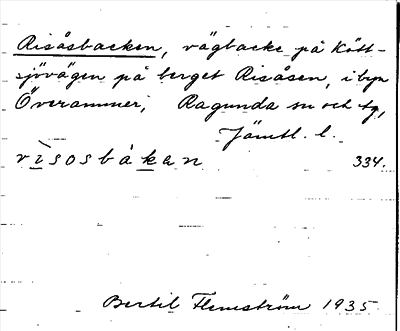 Risåsbacken, vägbacke på Kött-
sjövägen på berget Risåsen, i byn
Överammer, Ragunda sn och tg,
Jämtl. l.
risosbákan 334.
Bertil Flemström 1935